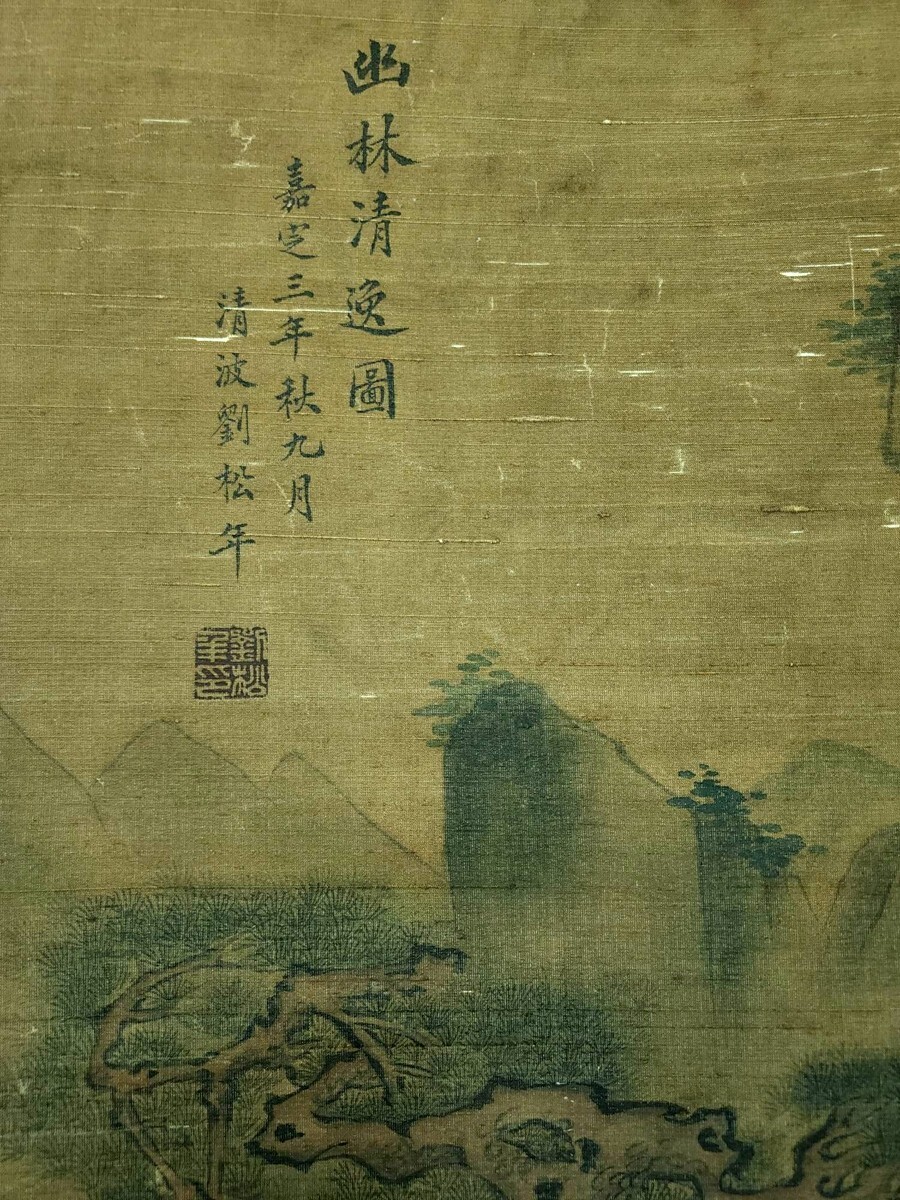 幽林清逸圖
嘉定三年秋九月
清波劉松年
劉松年印